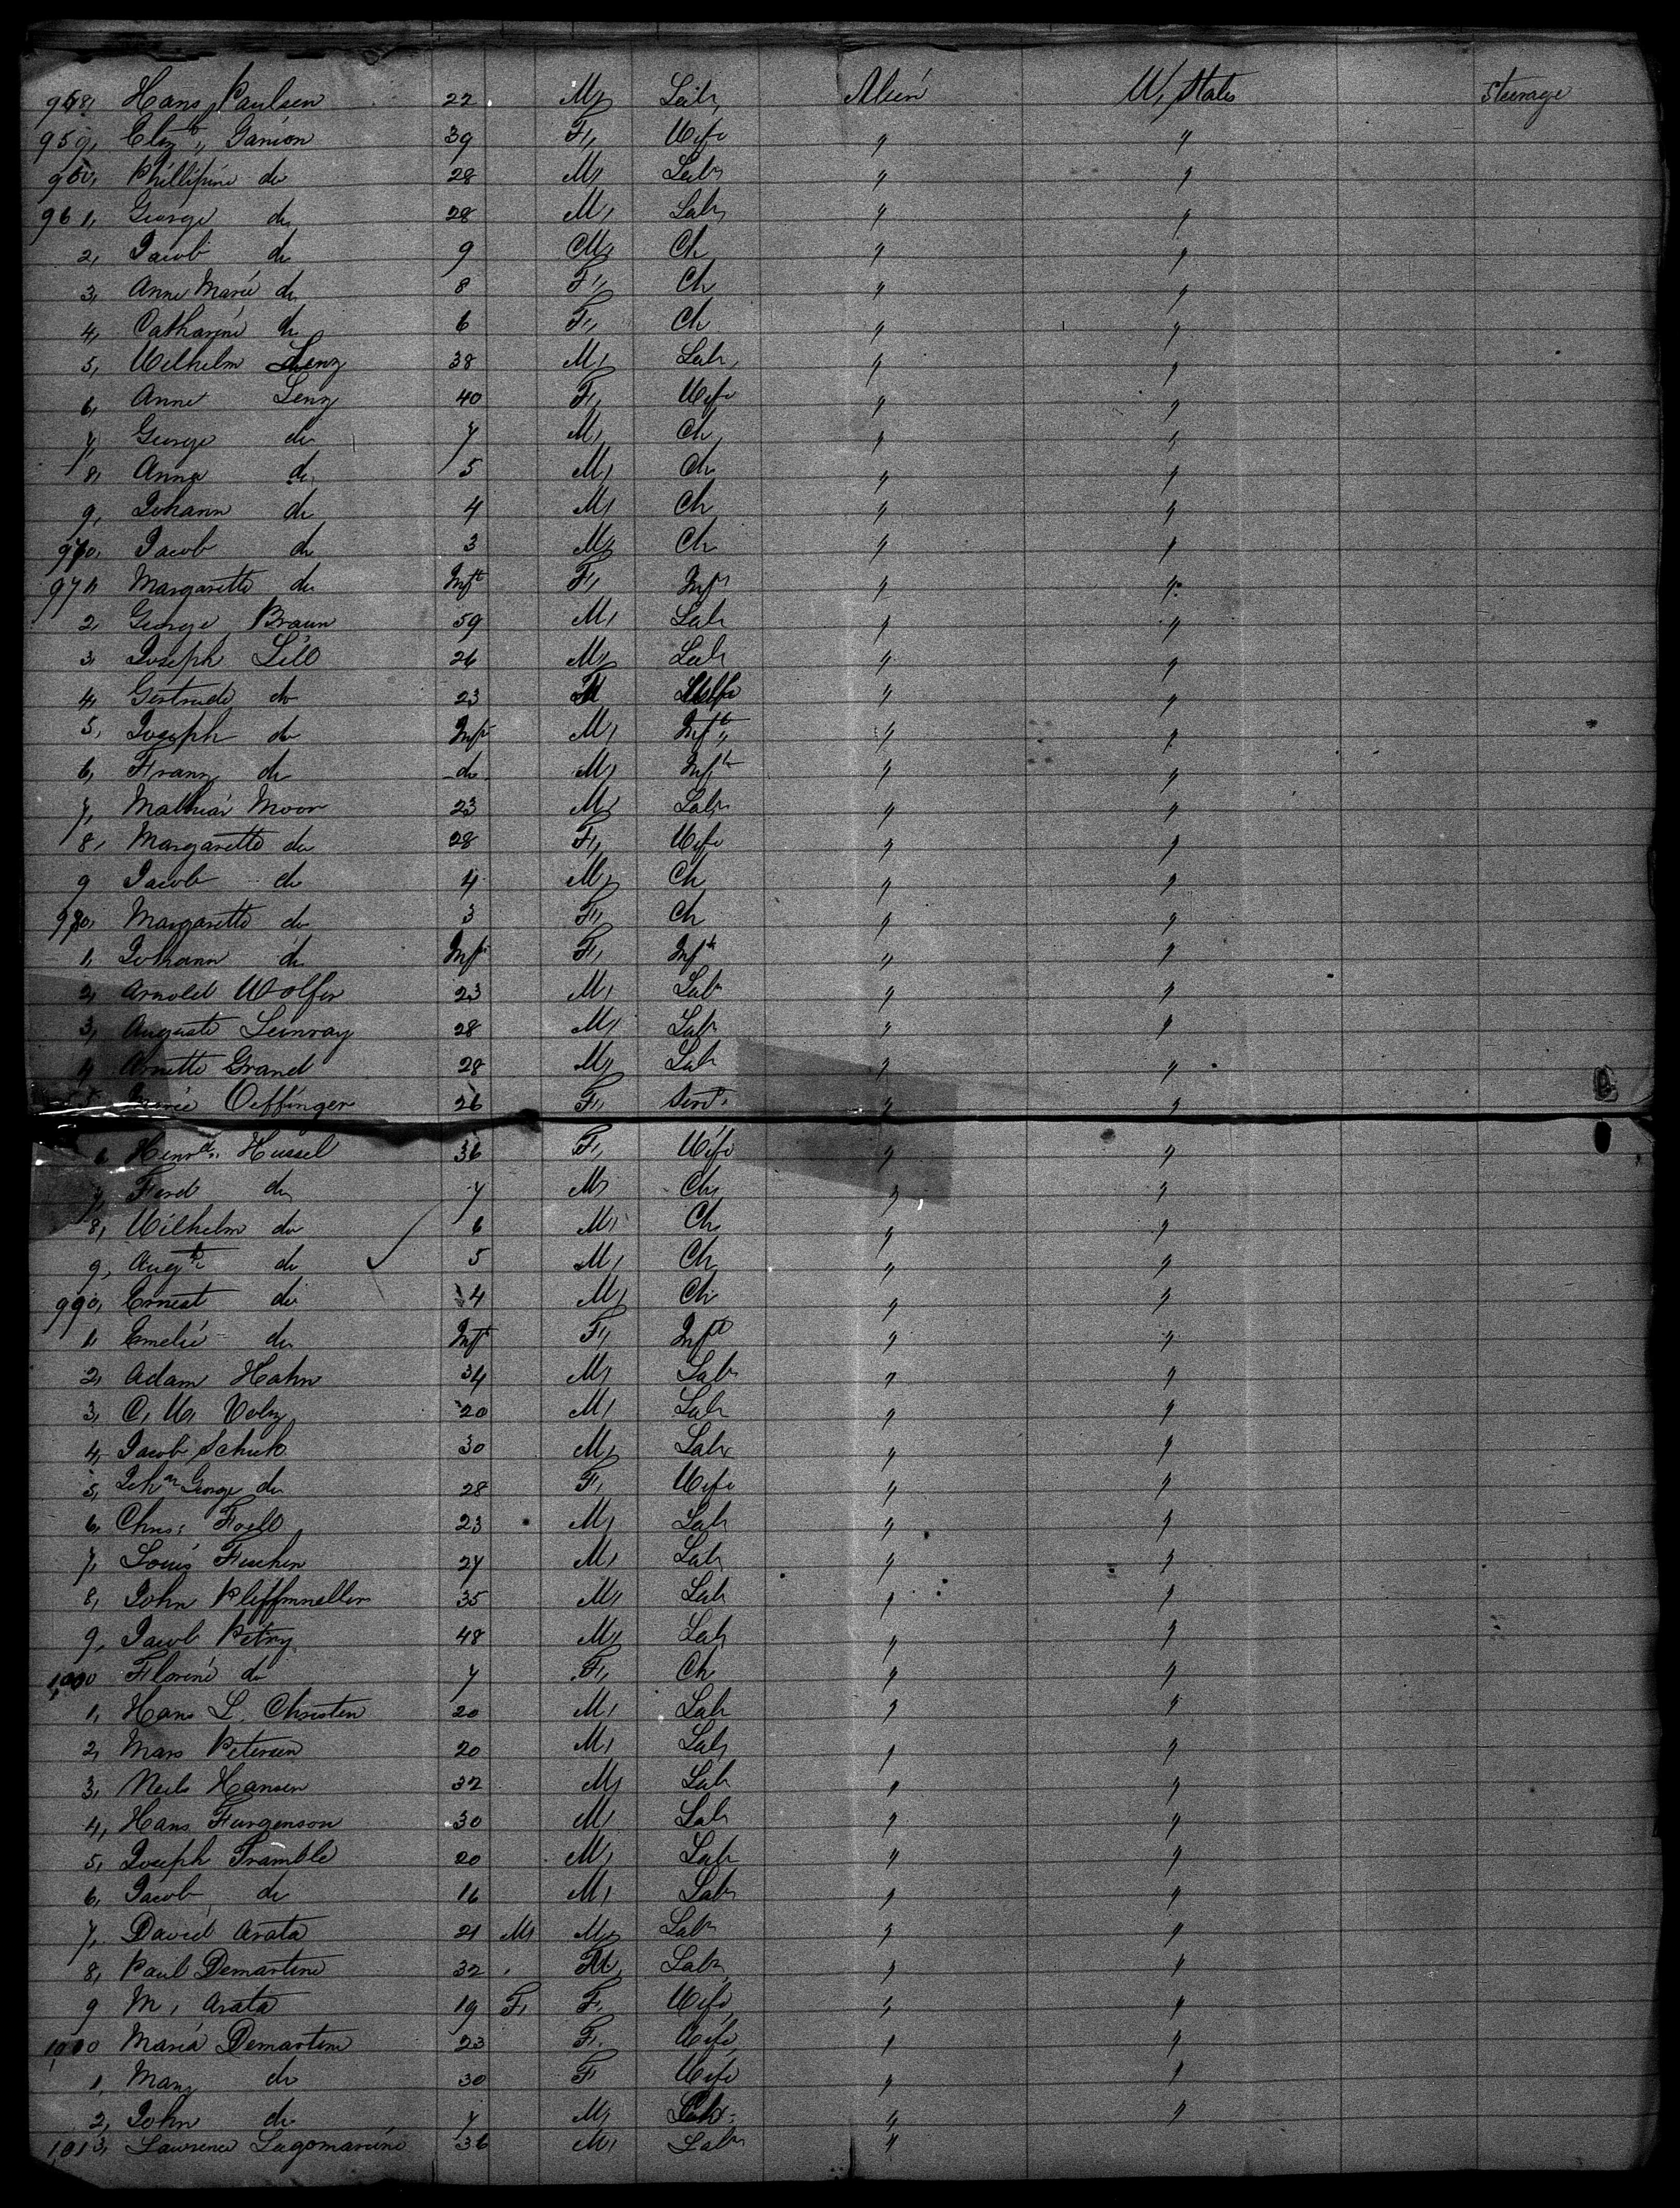 958, Hans Paulsen 22 M, Lab, Alien U, States Steerage
959, Eliz,, Ganion 39 F, Wife " "
960, Phillipine do 28 M, Labr " "
961, George do 28 M, Lab, " "
2, Jacob do 9 M, Ch " "
3, Anne Marie do 8 F, Ch " "
4, Catharine do 6 F, Ch " "
5, Wilhelm Lenz 38 M, Lab, " "
6, Anne Lenz 40 F, Wife " "
7, George do 7 M, Ch, " "
8, Anna do, 5 M, Ch " "
9, Johann do 4 M, Ch " "
970, Jacob do 3 M, Ch " "
971, Margarette do Inft F, Inft " "
2, George Braun 59 M, Lab " "
3, Joseph Lill 26 M, Lab " "
4, Gertrude do 23 F Wife " "
5, Joseph do Inft M, Inft,, " "
6, Franz do do M, Inft " "
7, Mathias Moor 23 M, Labr " "
8, Margarette do 28 F, Wife " "
9 Jacob do 4 M, Ch " "
980, Margarette do 3 F, Ch " "
1, Johann do Inft F, Inft " "
2, Arnold Wolfer 23 M, Labr " "
3, Auguste Leinray 28 M, Labr " "
4 Arnette Grand 28 M, Lab " "
5 Marie Oeffinger 26 F, Servt. " "
6 Henrtt,, Hussel 36 F, Wife " "
7, Ferd do 7 M, Ch, " "
8, Wilhelm do 6 M, Ch, " "
9, Augte do 5 M, Ch " "
990, Ernest do 4 M, Ch " "
1, Emelie do Inft F, Inft " "
2, Adam Hahn 34 M, Labr " "
3, C, W, Volz 20 M, Lab " "
4, Jacob Schuh 30 M, Labr " "
5, Johan George do 28 F, Wife " "
6, Chris: Foell 23 M, Lab " "
7, Louis 27 M, Lab " "
8, John 35 M, Lab " "
9, Jacob Petry 48 M, Lab " "
1,000 Florine do 7 F, Ch " "
1, Hans L. Christen 20 M, Lab " "
2, Mars Petersen 20 M, Lab, " "
3, Neils Hansen 32 M, Lab " "
4, Hans Furgenson 30 M, Lab " "
5, Joseph Tramble 20 M, Lab " "
6, Jacob do 16 M, Labr " "
7, David Arata 21 M, M, Labr " "
8, Paul Demartini 32 M, Labr, " "
9 M, Arata 19 F, F, Wife, " "
1,010 Maria Demartini 23 F. Wife, " "
1, Mary do 30 F Wife " "
2, John do 7 M, " "
1,013, Lawrence Lagomarsini 36 M, Labr "